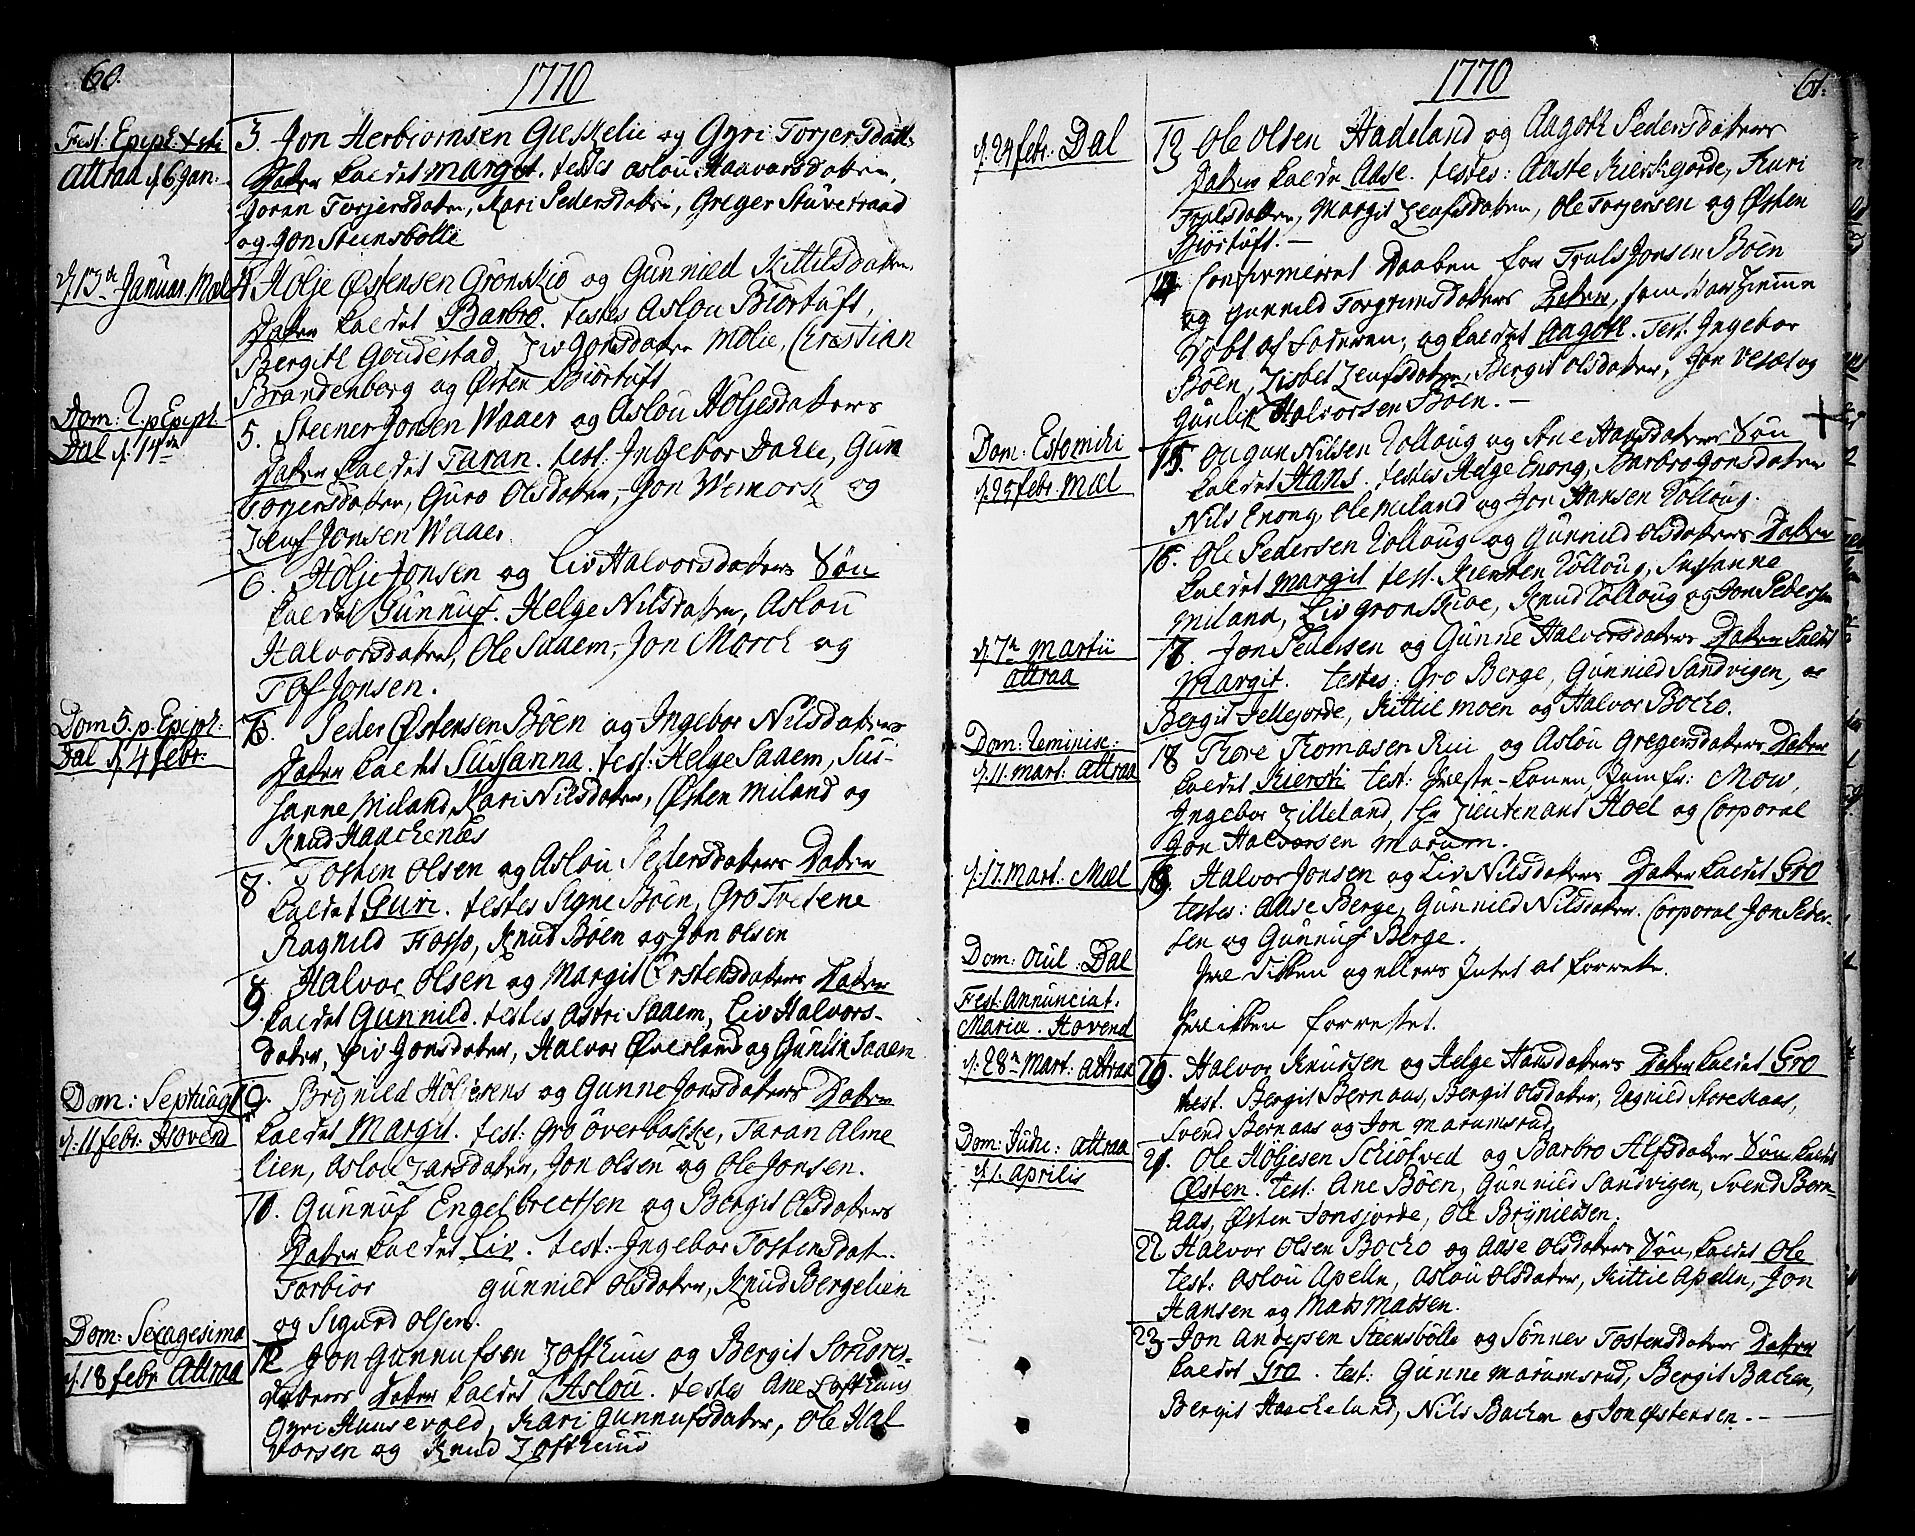 60.
1770
Fest: Epiph:
Attraa d. 6 Jan.
3. Jon Herbiornsen Gieskelie og Gyri Torjersdatt:
Dater kaldet Margit. testes Aslou Haavorsdater,
Joran Torjersdater, Kari Pedersdater, Greger Stuvetraad
og Jon Steensbolle
d. 13de Januar. Mæl
4 Holje Østensen Gronskio og Gunnild Kittilsdaters
Dater kaldet Barbro. testes Aslou Biørtuft,
Bergith Goudestad, Liv Jonsdater Molie, Christian
Brandenborg og Østen Biørtuft
Dom: 2. p Epiph:
Dal d. 14de
5. Steener Jonsen Waaer og Aslou Holjesdaters
Dater kaldet Taran. test: Ingebor Dahle, Gun
Torjersdater, Guro Olsdater, Jon Wemork og
Leuf Jonsen Waaer
6. Holje Jonsen og Liv Halvorsdaters Søn
kaldet Gunnuf. Helge Nilsdater, Aslou
Halvorsdater, Ole Saaem, Jon Morch og
Tof Jonsen.
Dom 5. p. Epiph:
Dal d. 4 febr:
7. Peder Østensen Böen og Ingebor Nilsdaters
Dater kaldet Sussanna. test: Helge Saaem, Sus-
sanne Miland, Kari Nilsdater, Østen Miland og
Knud Haackenæs
8. Tosten Olsen og Aslou Pedersdaters Dater
kaldet Guri. testes Signe Böen, Gro Tvetene
Ragnild Fosso, Knud Böen og Jon Olsen
9. Halvor Olsen og Margit Erstensdaters Dater
kaldet Gunnild. testes Astri Saaem, Liv Halvors-
dater, Liv Jonsdater, Halvor Øverland og Gunlik Saaem
Dom: Septuag:
d. 11 febr: Hovend
10. Brynild Holjesens og Gunne Jonsdaters Dater
kaldet Margit. test: Gro Överbakke, Taran Alme
lien, Aslou Larsdater, Jon Olsen og Ole Jonsen.
10. Gunnuf Engelbrectsen og Bergit Olsdaters
Dater kaldet Liv. test: Ingebor Tostensdat.
Torbior Gunnild Olsdater, Knud Bergelien
og Sigurd Olsen.
Dom: Sexagesima
d. 18 febr Attraa
12 Jon Gunnufsen Lofthuus og Bergit
daters Dater kaldet Aslou. testes Ane Lofthuus
Gyri Huusevold, Kari Gunnufsdater, Ole Hal
vorsen og Knud Lofthuus
61.
1770
d. 24 febr: Dal
13 Ole Olsen Hadeland og Aagoth Pedersdaters
Dater kaldet Aase. testes: Aaste Kierkejorde, Kari
Trulsdater, Margit Leufsdater, Ole Torjersen og Østen
Biörtuft. –
14. Confirmeret Daaben for Truls Jonsen Böen
og Gunnild Torgrimsdaters Dater, som var hiemme
döbt af Faderen, og kaldet Aagoth. Test. Ingebor
Böen, Lisbet Leufsdater, Bergit Olsdater, Jon Vesæl og
Gunlik Halvorsen Böen. –
Dom: Estomihi
d. 25 febr: Mæl
15. Ougun Nilsen Tolloug og Ane Hansdaters Søn
kaldet Hans. testes Helge Enong, Barbro Jonsdater
Nils Enong, Ole Miland og Jon Hansen Tolloug.
16. Ole Pedersen Tolloug og Gunnild Olsdaters Dater
kaldet Margit test. Kiersten Tolloug, Sussanne
Miland, Liv Gronskioe, Knud Tolloug og Jon Pedersen
d. 7de Martii
Attraa
17. Jon Pedersen og Gunne Halvorsdaters Dater kaldet
Margit. testes: Gro Berge, Gunnild Sandvigen,
Bergit Jellejorde, Kittil Moen og Halvor Bocko.
Dom: Reminisc:
d. 11. Mart: Attraa
18 Thore Thomasen Rui og Aslou Gregersdaters Dater
kaldet Kiersti test: Præste-konen, Jomfr: Mow,
Ingebor Lilleland, Hr Lieutenant Hoel og Corporal
Jon Halvorsen Marum.
d. 17. Mart. Mæl
19. Halvor Jonsen og Liv Nilsdaters Dater kaldet Gro
testes: Aase Berge, Gunnild Nilsdater. Corporal Jon Peder-
sen og Gunnuf Berge.
Dom: Ocul: Dal
Prædikken og ellers Intet at forrette.
Fest: Annunciat.
Mariæ. Hovend
Prædikken forrettet.
d. 28de Mart: Attraa
20. Halvor Knudsen og Helge Hansdaters Dater kaldet Gro
test. Bergit Bernaas, Bergit Olsdater, Ragnild Storeskaas,
Svend Bernaas og Jon Marumsrud
Dom: Judic: Attraa
d. 1. Aprilis
21. Ole Höljesen Schiölved og Barbro Alfsdater Søn kaldet
Østen. test: Ane Böen, Gunnild Sandvigen, Svend Bern-
aas, Østen Tonsjorde, Ole Brynildsen.
22 Halvor Olsen Bocko og Aase Olsdaters Søn, kaldet Ole
test: Aslou Apelln, Aslou Olsdater, Kittil Apelln, Jon
Hansen og Mats Madsen.
23 Jon Andersen Steensbölle og Sönnev Tostensdaters Dater
kaldet Gro. test: Gunne Marumsrud, Bergit Backen,
Bergit Haackeland, Nils Backen og Jon Østensen. –